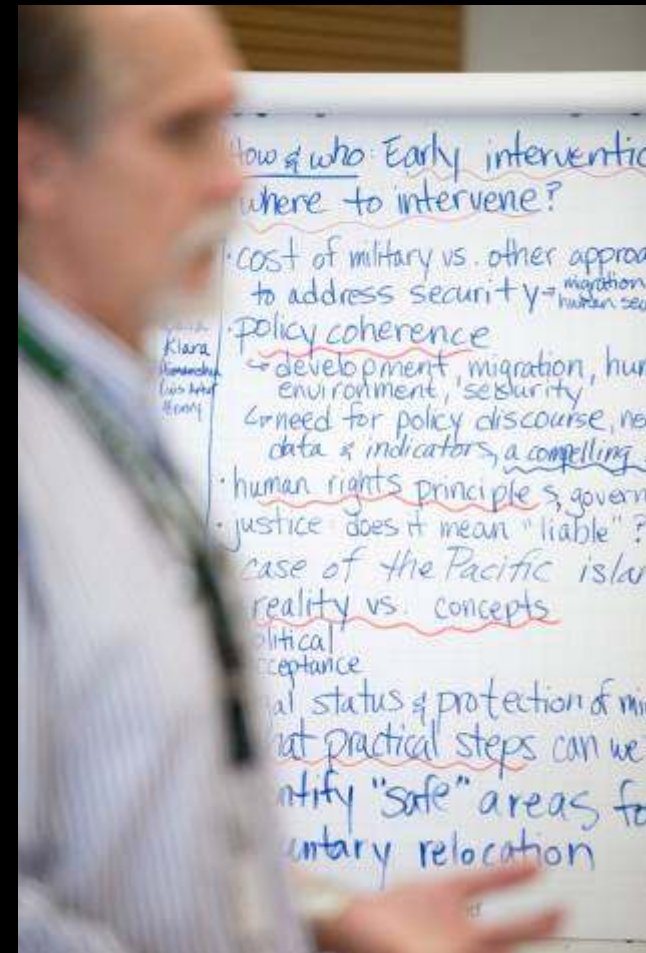 How & who: Early interventio
where to intervene?
· cost of military vs. other approa
to address security → migration
human sec
· policy coherence
↳ development, migration, hum
environment, security
↳ need for policy discourse, ne
data & indicators, a compelling
· human rights principle s, govern
· justice does it mean "liable"?
case of the Pacific islan
reality vs. concepts
olitical
cceptance
al status & protection of mi
at practical steps can we
ntify "safe" areas fo
untary relocation
Klara
Henry